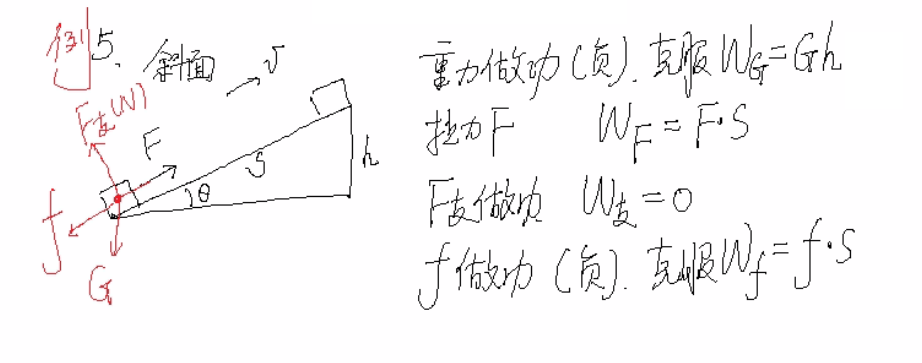 例5. 斜面 v
F支(N)
F
S
h
θ
f
G
重力做功(负). 克服W_G=Gh
拉力F W_F=F·S
F支做功 W支=0
f做功(负). 克服W_f=f·S